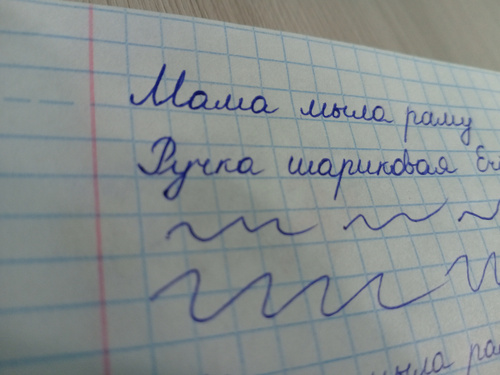 Мама мыла раму
Ручка шариковая
мыла